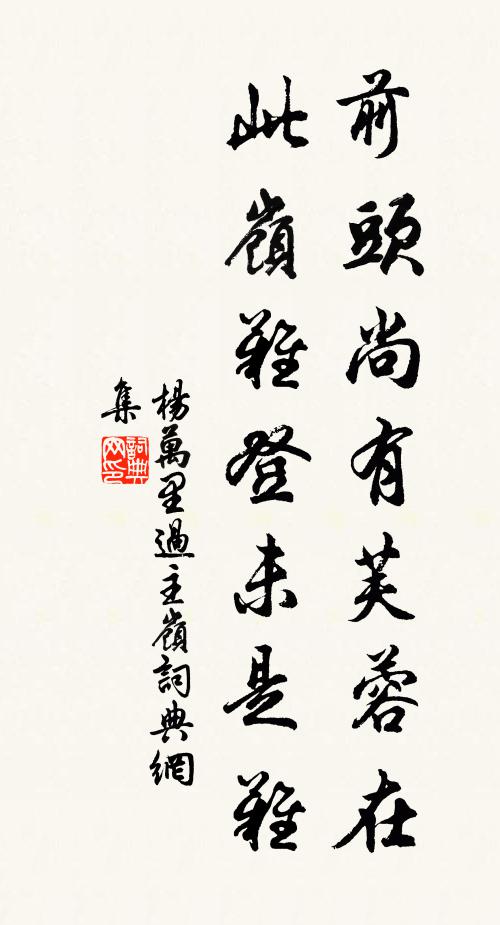 前頭尚有芙蓉在
此嶺難登未是難
楊萬里過主嶺詞典網
集
詞典網印